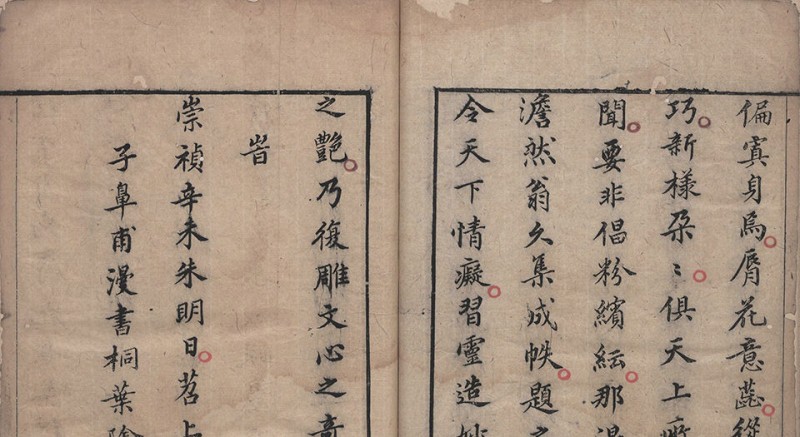 偏寘身焉膺花意蕋從
巧新樣朶〻俱天上
聞要非倡粉繽紜那
澹然翁久集成帙題之
令天下情癡習靈造妙
之艷乃復雕文心之奇
旹
崇禎辛未朱明日茗上
子臯甫漫書桐葉陰